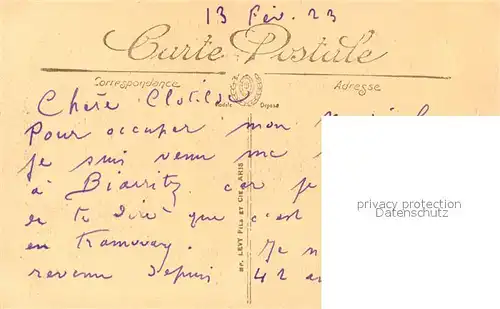 13 Fév. 23
Carte Postale
Correspondance
Adresse
Modèle Déposé
Chère Clotilde
Pour occuper mon
je suis venu me
à Biarritz car je
et te dire que c'est
en tramway. Je n
revenu depuis 42 an
BP. LEVY FILS ET CIE PARIS
privacy protection
Datenschutz